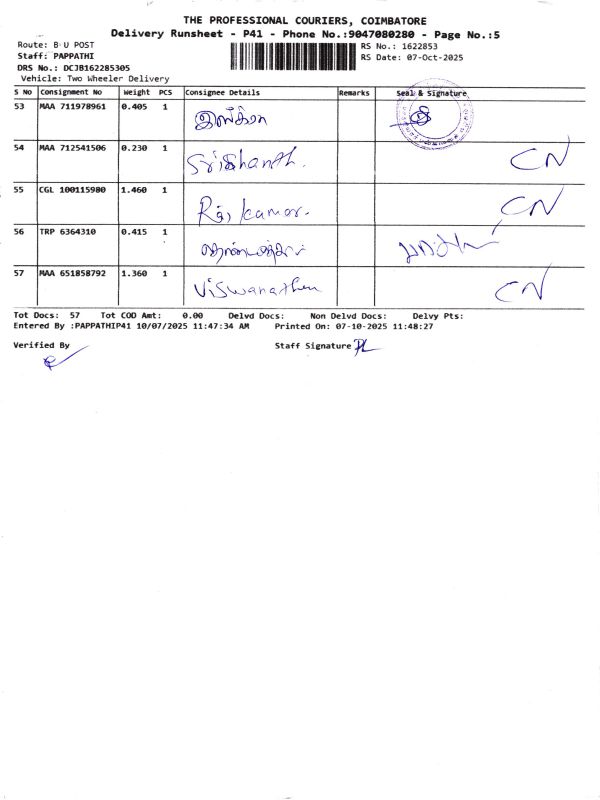 THE PROFESSIONAL COURIERS, COIMBATORE
Delivery Runsheet - P41 - Phone No.:9047080280 - Page No.:5
Route: B U POST RS No.: 1622853
Staff: PAPPATHI RS Date: 07-Oct-2025
DRS No.: DCJB162285305
Vehicle: Two Wheeler Delivery
S NO Consignment No Weight PCS Consignee Details Remarks Seal & Signature
53 MAA 711978961 0.405 1
54 MAA 712541506 0.230 1 Srishanth. CN
55 CGL 100115980 1.460 1 Raj kamar. CN
56 TRP 6364310 0.415 1
57 MAA 651858792 1.360 1 Viswanathan CN
Tot Docs: 57 Tot COD Amt: 0.00 Delvd Docs: Non Delvd Docs: Delvy Pts:
Entered By :PAPPATHIP41 10/07/2025 11:47:34 AM Printed On: 07-10-2025 11:48:27
Verified By Staff Signature